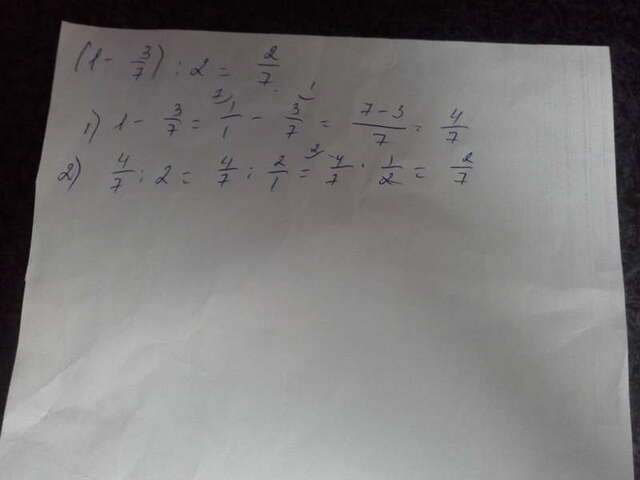 (1 - 3/7) : 2 = 2/7
1) 1 - 3/7 = 7) 1/1 - 3/7 (1 = 7-3/7 = 4/7
2) 4/7 : 2 = 4/7 : 2/1 = 2) 4/7 · 1/2 = 2/7